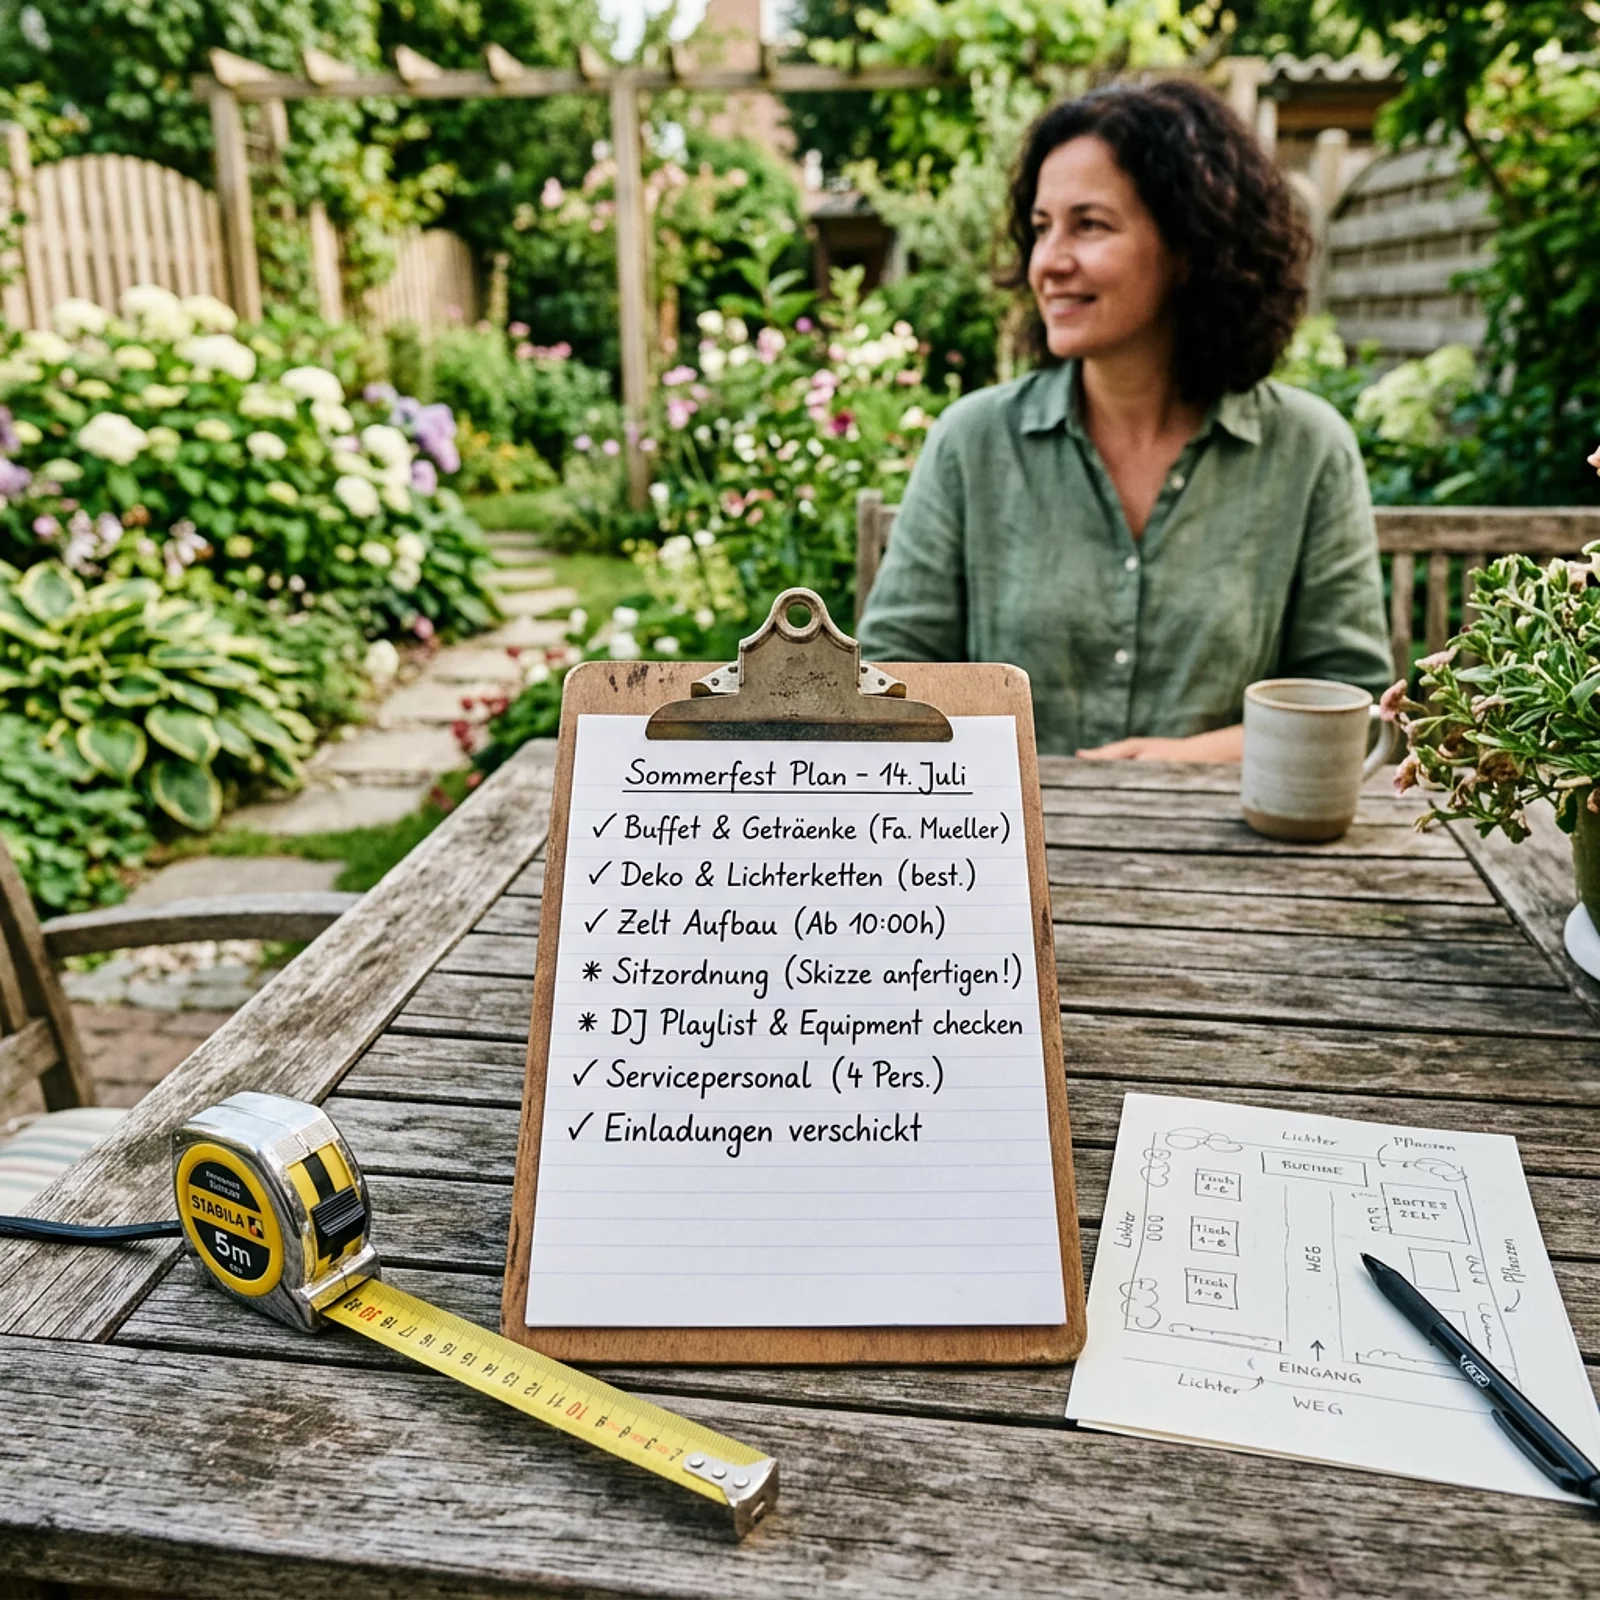 Sommerfest Plan - 14. Juli
✓ Buffet & Geträenke (Fa. Mueller)
✓ Deko & Lichterketten (best.)
✓ Zelt Aufbau (Ab 10:00h)
* Sitzordnung (Skizze anfertigen!)
* DJ Playlist & Equipment checken
✓ Servicepersonal (4 Pers.)
✓ Einladungen verschickt
STABILA
5m
Lichter
Pflanzen
Tisch
WEG
Pflanzen
EINGANG
Lichter
WEG